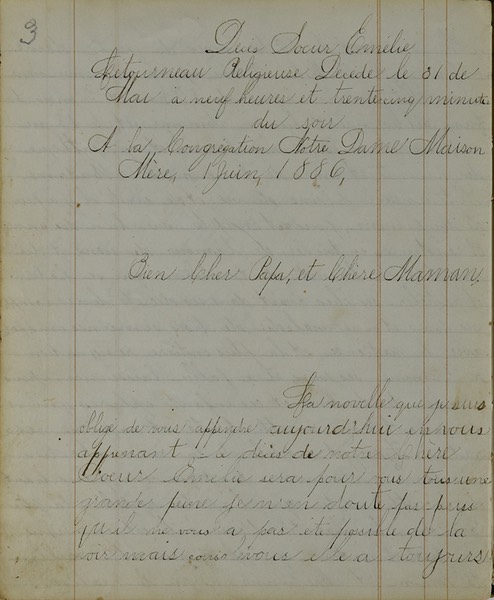 3
Déis Soeur Emélie
Letourneau Religieuse Décede le 31 de
Mai à neuf heures et trente cinq minute
du soir
A la Congrégation Notre Dame Maison
Mère, 1 Juin, 1886,
Bien Cher Papa, et Chère Maman,
La novelle que je suis
oblige de vous apprendre aujourdhui en vous
apprenant le décès de notre chère
Soeur Emélie sera pour vous tous une
grande peine je n'en doute pas puis
qu il ne vous a pas été posible de la
voir mais vous elle a toujours